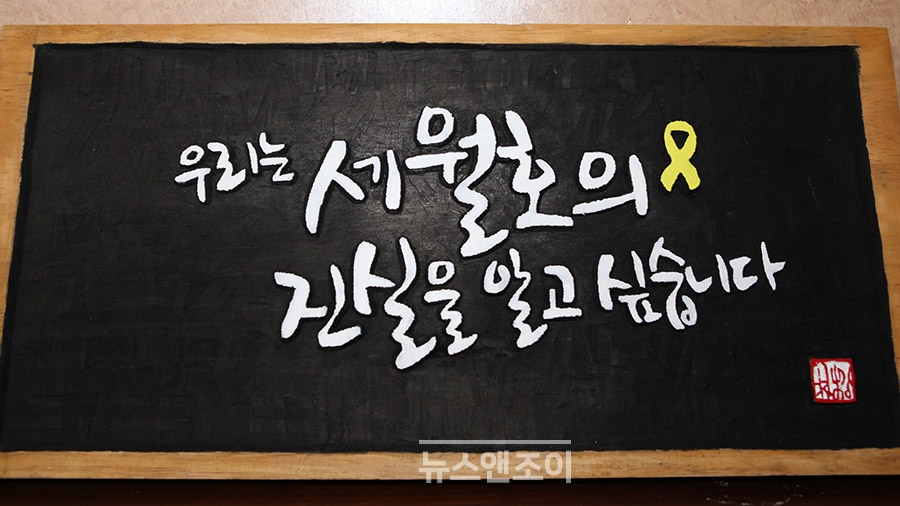 우리는 세월호의
진실을 알고 싶습니다
뉴스앤조이